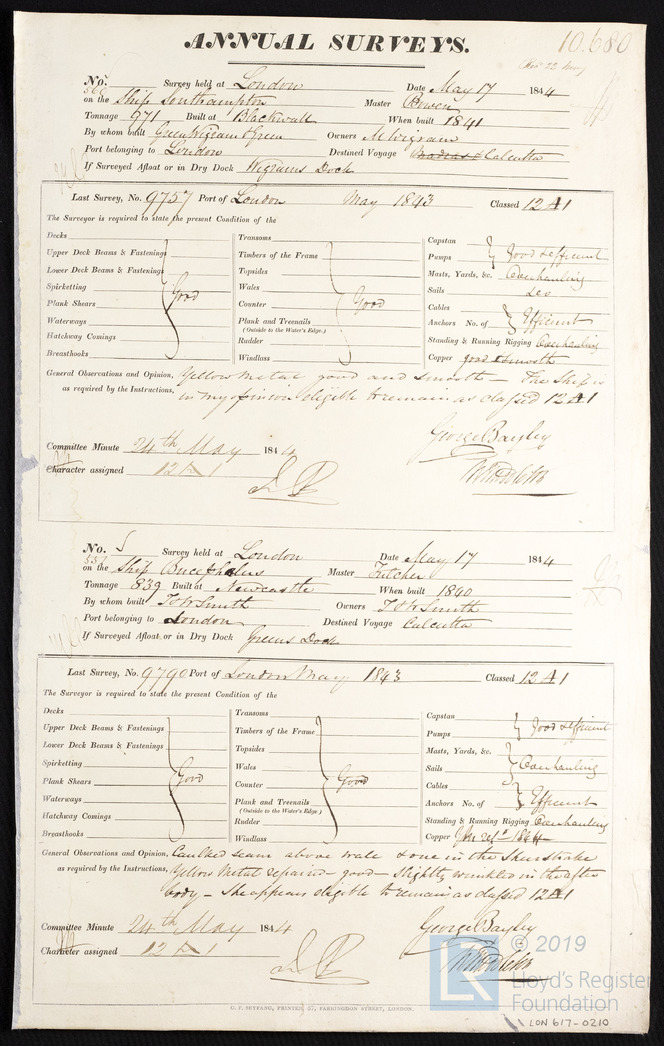 ANNUAL SURVEYS.
10.680
No. Survey held at London Date May 17 1844
on the Ship Southampton Master Bowen
Tonnage 971 Built at Blackwall When built 1841
By whom built Green Wigram & Green Owners M Wigram
Port belonging to London Destined Voyage Madras & Calcutta
If Surveyed Afloat or in Dry Dock Wigrams Dock
Last Survey, No. 9757 Port of London May 1843 Classed 12 A1
The Surveyor is required to state the present Condition of the
Decks
Upper Deck Beams & Fastenings
Lower Deck Beams & Fastenings
Spirketting Good
Plank Shears
Waterways
Hatchway Comings
Breasthooks
Transoms
Timbers of the Frame
Topsides
Wales
Counter Good
Plank and Treenails
(Outside to the Water's Edge.)
Rudder
Windlass
Capstan
Pumps good & efficient
Masts, Yards, &c. Overhauling
Sails
Cables
Anchors No. of Efficient
Standing & Running Rigging Overhauling
Copper good & smooth
General Observations and Opinion, Yellow Metal good and smooth – The Ship is
as required by the Instructions, in my opinion eligible to remain as classed 12 A1
George Bayley
Committee Minute 24th May 1844
Character assigned 12 A 1
No. Survey held at London Date May 17 1844
on the Ship Bucephalus Master Fitcher
Tonnage 839 Built at Newcastle When built 1840
By whom built T & W Smith Owners T & W Smith
Port belonging to London Destined Voyage Calcutta
If Surveyed Afloat or in Dry Dock Greens Dock
Last Survey, No. 9790 Port of London May 1843 Classed 12 A1
The Surveyor is required to state the present Condition of the
Decks
Upper Deck Beams & Fastenings
Lower Deck Beams & Fastenings
Spirketting
Plank Shears Good
Waterways
Hatchway Comings
Breasthooks
Transoms
Timbers of the Frame
Topsides
Wales
Counter Good
Plank and Treenails
(Outside to the Water's Edge.)
Rudder
Windlass
Capstan
Pumps good & efficient
Masts, Yards, &c.
Sails Overhauling
Cables
Anchors No. of Efficient
Standing & Running Rigging Overhauling
Copper 1844
General Observations and Opinion, Caulked seam above wale & one in the Sheerstrake
as required by the Instructions, Yellow Metal repaired – good – slightly wrinkled in the after
body – She appears eligible to remain as classed 12 A1
George Bayley
Committee Minute 24th May 1844
Character assigned 12 A 1
© 2019
Lloyd's Register
Foundation
C. F. SEYFANG, PRINTER, 57, FARRINGDON STREET, LONDON.
LON 617-0210